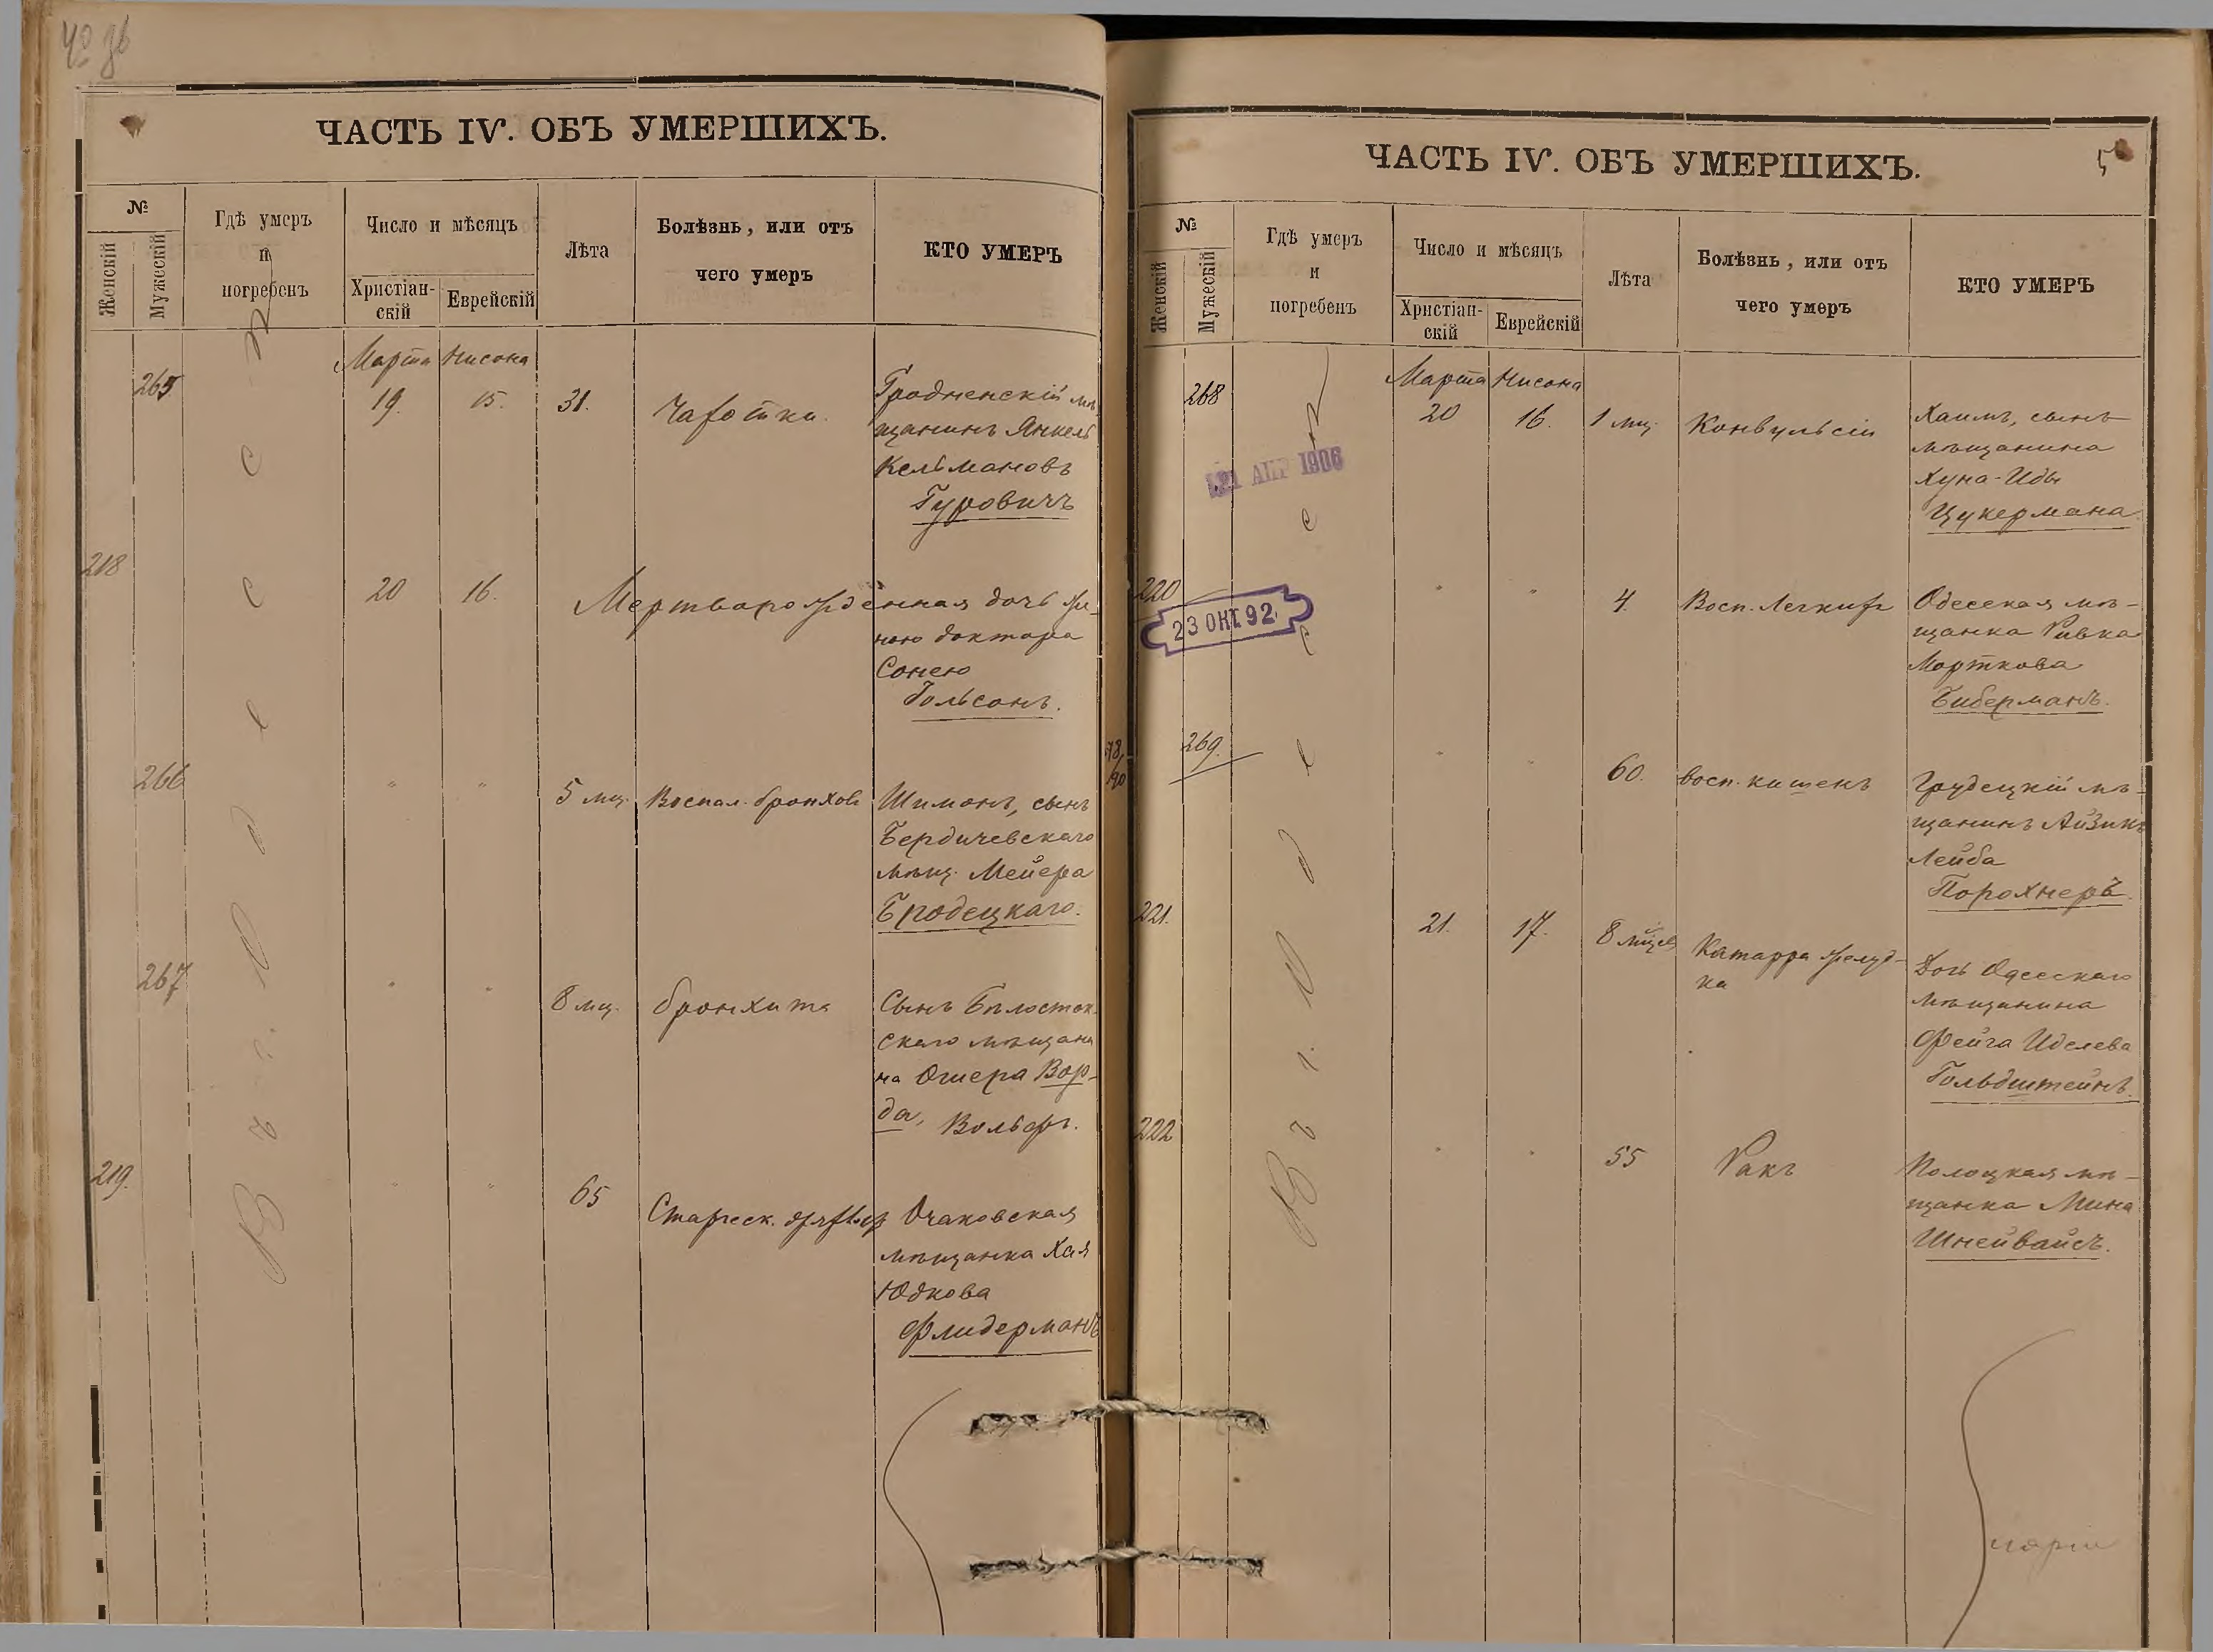 ЧАСТЬ IV. ОБЪ УМЕРШИХЪ.
№
Женскій
Мужескій
Гдѣ умеръ
и
погребенъ
Число и мѣсяцъ
Христіан-
скій
Еврейскій
Лѣта
Болѣзнь, или отъ
чего умеръ
КТО УМЕРЪ
Въ г. Одессѣ
Марта Нисона
265 19. 15. 31. Чахотки. Гродненскій мѣ-
щанинъ Янкель
Кельмановъ
Гуровичъ
218 20 16. Мертворожденная дочь же-
ною доктора
Сонею
Гольсонъ.
266 " " 5 мц. Воспал. бронховъ Шимонъ, сынъ
Бердичевскаго
мѣщ. Мейера
Бродецкаго.
267 " " 8 мц. бронхита Сынъ Бѣлосток-
скаго мѣщани
на Ошера Вор-
да, Вольфъ.
219. " " 65 Старческ. дряхлос Очаковская
мѣщанка Хая
Юдкова
Флидерманъ
ЧАСТЬ IV. ОБЪ УМЕРШИХЪ.
5
№
Женскій
Мужескій
Гдѣ умеръ
и
погребенъ
Число и мѣсяцъ
Христіан-
скій
Еврейскій
Лѣта
Болѣзнь, или отъ
чего умеръ
КТО УМЕРЪ
Въ г. Одессѣ
Марта Нисона
268 20 16. 1 мц. Конвульсіи Хаимъ, сынъ
мѣщанина
Хуна-Иды
Цукермана
21 АПР 1906
220 " " 4. Восп. легкихъ Одесская мѣ-
щанка Ривка
Морткова
Биберманъ.
23 ОКТ. 92
269. " " 60. восп. кишекъ Грудецкій мѣ-
щанинъ Айзикъ
Лейба
Порохнеръ.
78/90
221. 21. 17. 8 мцев Катарра желуд-
ка
Дочь Одесскаго
мѣщанина
Фейга Иделева
Гольдштейнъ.
222 " " 55 Ракъ Полоцкая мѣ-
щанка Мина
Шнейвайсъ.